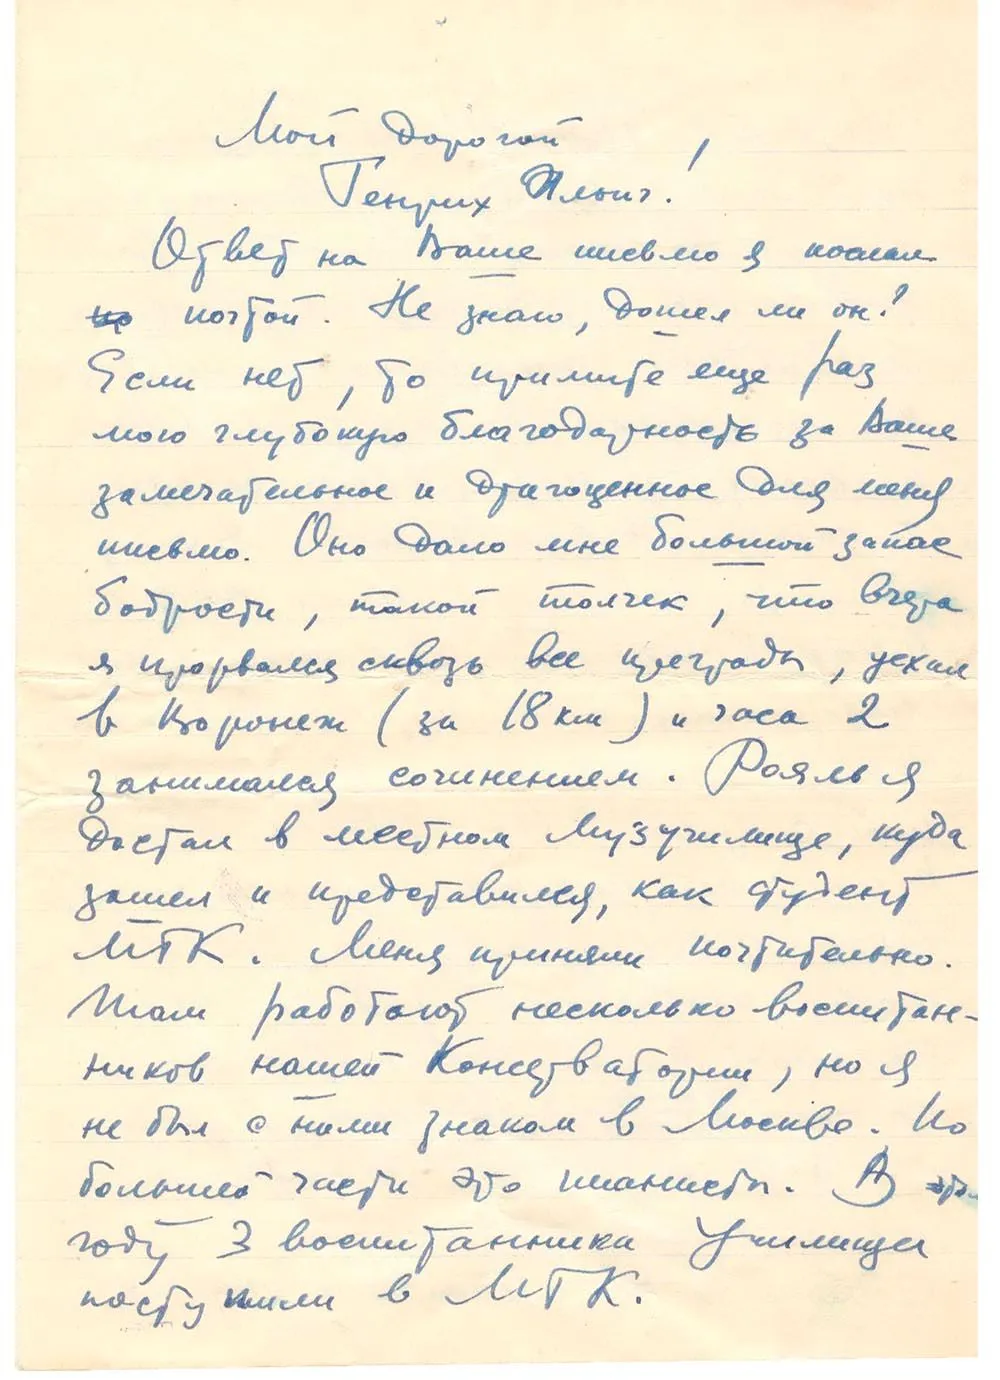 Мой дорогой
Генрих Ильич!
Ответ на Ваше письмо я послал
почтой. Не знаю, дошел ли он?
Если нет, то примите еще раз
мою глубокую благодарность за Ваше
замечательное и драгоценное для меня
письмо. Оно дало мне большой запас
бодрости, такой толчек, что вчера
я прорвался сквозь все преграды, уехал
в Воронеж (за 18 км) и часа 2
занимался сочинением. Рояль я
достал в местном Музучилище, куда
зашел и представился, как студент
МГК. Меня приняли почтительно.
Там работают несколько воспитан-
ников нашей Консерватории, но я
не был с ними знаком в Москве. По
большей части это пианисты. В этом
году 3 воспитанника Училища
поступили в МГК.